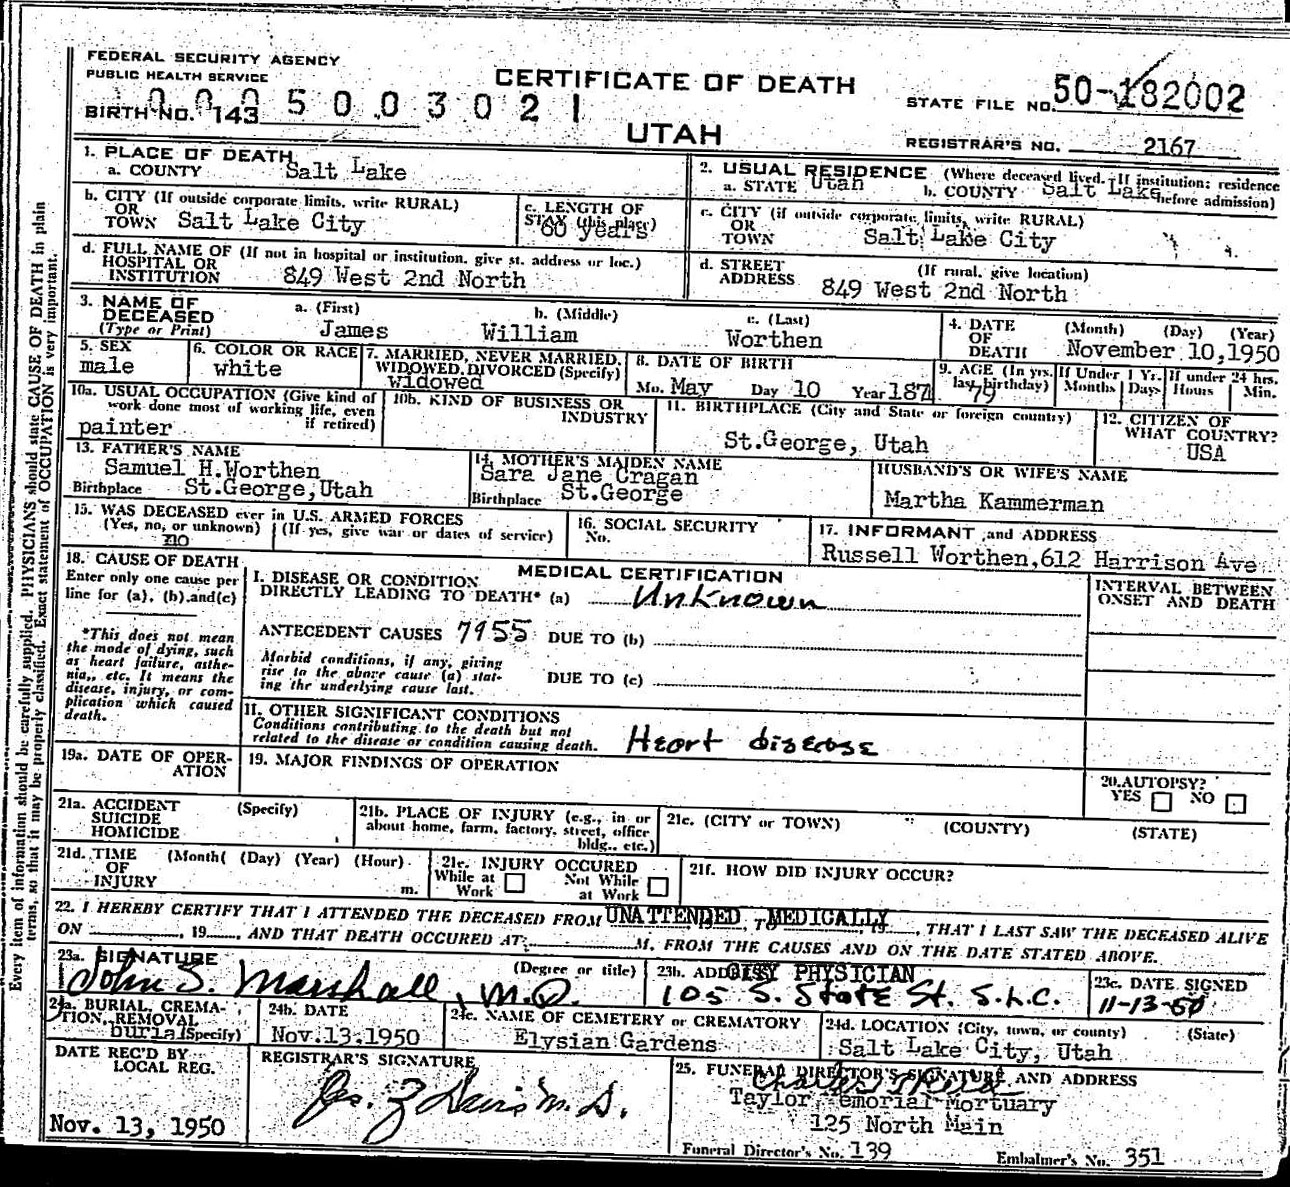 FEDERAL SECURITY AGENCY
PUBLIC HEALTH SERVICE
CERTIFICATE OF DEATH
STATE FILE NO. 50-182002
BIRTH NO. 143
0005003021
UTAH
REGISTRAR'S NO. 2167
1. PLACE OF DEATH
a. COUNTY Salt Lake
2. USUAL RESIDENCE (Where deceased lived. If institution: residence before admission)
a. STATE Utah b. COUNTY Salt Lake
b. CITY (If outside corporate limits, write RURAL)
OR
TOWN Salt Lake City
c. LENGTH OF
STAY (this place)
60 years
c. CITY (if outside corporate limits, write RURAL)
OR
TOWN Salt Lake City
d. FULL NAME OF (If not in hospital or institution, give st. address or loc.)
HOSPITAL OR
INSTITUTION 849 West 2nd North
d. STREET
ADDRESS (If rural, give location)
849 West 2nd North
3. NAME OF
DECEASED
(Type or Print)
a. (First) b. (Middle) c. (Last)
James William Worthen
4. DATE
OF
DEATH
(Month) (Day) (Year)
November 10,1950
5. SEX
male
6. COLOR OR RACE
white
7. MARRIED, NEVER MARRIED,
WIDOWED, DIVORCED (Specify)
widowed
8. DATE OF BIRTH
Mo. May Day 10 Year 1871
9. AGE (In yrs.
last birthday)
79
If Under 1 Yr.
Months Days
If under 24 hrs.
Hours Min.
10a. USUAL OCCUPATION (Give kind of
work done most of working life, even
if retired)
painter
10b. KIND OF BUSINESS OR
INDUSTRY
11. BIRTHPLACE (City and State or foreign country)
St.George, Utah
12. CITIZEN OF
WHAT COUNTRY?
USA
13. FATHER'S NAME
Samuel H.Worthen
Birthplace St.George,Utah
14. MOTHER'S MAIDEN NAME
Sara Jane Cragan
Birthplace St.George
HUSBAND'S OR WIFE'S NAME
Martha Kammerman
15. WAS DECEASED ever in U.S. ARMED FORCES
(Yes, no, or unknown) (If yes, give war or dates of service)
no
16. SOCIAL SECURITY
No.
17. INFORMANT and ADDRESS
Russell Worthen,612 Harrison Ave
18. CAUSE OF DEATH
Enter only one cause per
line for (a), (b) and (c)
*This does not mean
the mode of dying, such
as heart failure, asthe-
nia, etc. It means the
disease, injury, or com-
plication which caused
death.
MEDICAL CERTIFICATION
I. DISEASE OR CONDITION
DIRECTLY LEADING TO DEATH* (a) Unknown
ANTECEDENT CAUSES 7955 DUE TO (b)
Morbid conditions, if any, giving
rise to the above cause (a) stat-
ing the underlying cause last.
DUE TO (c)
INTERVAL BETWEEN
ONSET AND DEATH
II. OTHER SIGNIFICANT CONDITIONS
Conditions contributing to the death but not
related to the disease or condition causing death.
Heart disease
19a. DATE OF OPER-
ATION
19. MAJOR FINDINGS OF OPERATION
20. AUTOPSY?
YES NO
21a. ACCIDENT (Specify)
SUICIDE
HOMICIDE
21b. PLACE OF INJURY (e.g., in or
about home, farm, factory, street, office
bldg., etc.)
21c. (CITY or TOWN) (COUNTY) (STATE)
21d. TIME (Month( (Day) (Year) (Hour)
OF
INJURY m.
21e. INJURY OCCURED
While at Work
Not While at Work
21f. HOW DID INJURY OCCUR?
22. I HEREBY CERTIFY THAT I ATTENDED THE DECEASED FROM UNATTENDED MEDICALLY, 19, THAT I LAST SAW THE DECEASED ALIVE
ON , 19, AND THAT DEATH OCCURED AT M, FROM THE CAUSES AND ON THE DATE STATED ABOVE.
23a. SIGNATURE (Degree or title)
John S. Marshall, M.D.
23b. ADDRESS
CITY PHYSICIAN
105 S. State St. S.L.C.
23c. DATE SIGNED
11-13-50
24a. BURIAL, CREMA-
TION, REMOVAL
(Specify)
burial
24b. DATE
Nov.13.1950
24c. NAME OF CEMETERY or CREMATORY
Elysian Gardens
24d. LOCATION (City, town, or county) (State)
Salt Lake City, Utah
DATE REC'D BY
LOCAL REG.
Nov. 13, 1950
REGISTRAR'S SIGNATURE
25. FUNERAL DIRECTOR'S SIGNATURE AND ADDRESS
Taylor Memorial Mortuary
125 North Main
Funeral Director's No. 139 Embalmer's No. 351
Every item of information should be carefully supplied. PHYSICIANS should state CAUSE OF DEATH in plain
terms, so that it may be properly classified. Exact statement of OCCUPATION is very important.